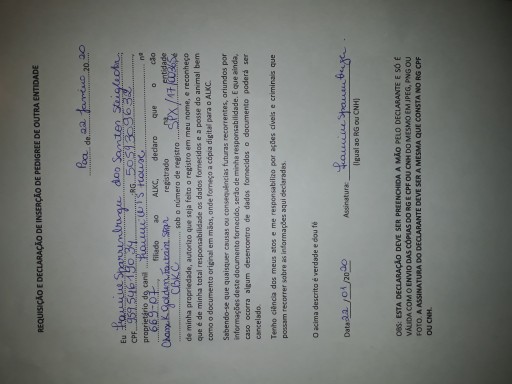 REQUISIÇÃO E DECLARAÇÃO DE INSERÇÃO DE PEDIGREE DE OUTRA ENTIDADE
Poa de 22 Janeiro 20 20
Eu dos Santos
CPF RG
proprietário do canil House nº
669-07 filiado ao ALKC, declaro que o cão
registrado na entidade
CBKC sob o número de registro SPX/17
de minha propriedade, autorizo que seja feito o registro em meu nome, e reconheço
que é de minha total responsabilidade os dados fornecidos e a posse do animal bem
como o documento original em mãos, onde forneço a cópia digital para o ALKC.
Sabendo-se que quaisquer causas ou consequências futuras recorrentes, oriundos por
informações deste documento fornecido, serão de minha responsabilidade. E que ainda,
caso ocorra algum desencontro de dados fornecidos o documento poderá ser
cancelado.
Tenho ciência dos meus atos e me responsabilizo por ações cíveis e criminais que
possam recorrer sobre as informações aqui declaradas.
O acima descrito é verdade e dou fé
Data 22 /01 /2020 Assinatura:
(Igual ao RG ou CNH)
OBS: ESTA DECLARAÇÃO DEVE SER PREENCHIDA A MÃO PELO DECLARANTE E SÓ É
VÁLIDA COM O ENVIO DAS CÓPIAS DO RG E CPF OU CNH DO MESMO EM JPEG, PNG OU
FOTO. A ASSINATURA DO DECLARANTE DEVE SER A MESMA QUE CONSTA NO RG CPF
OU CNH.